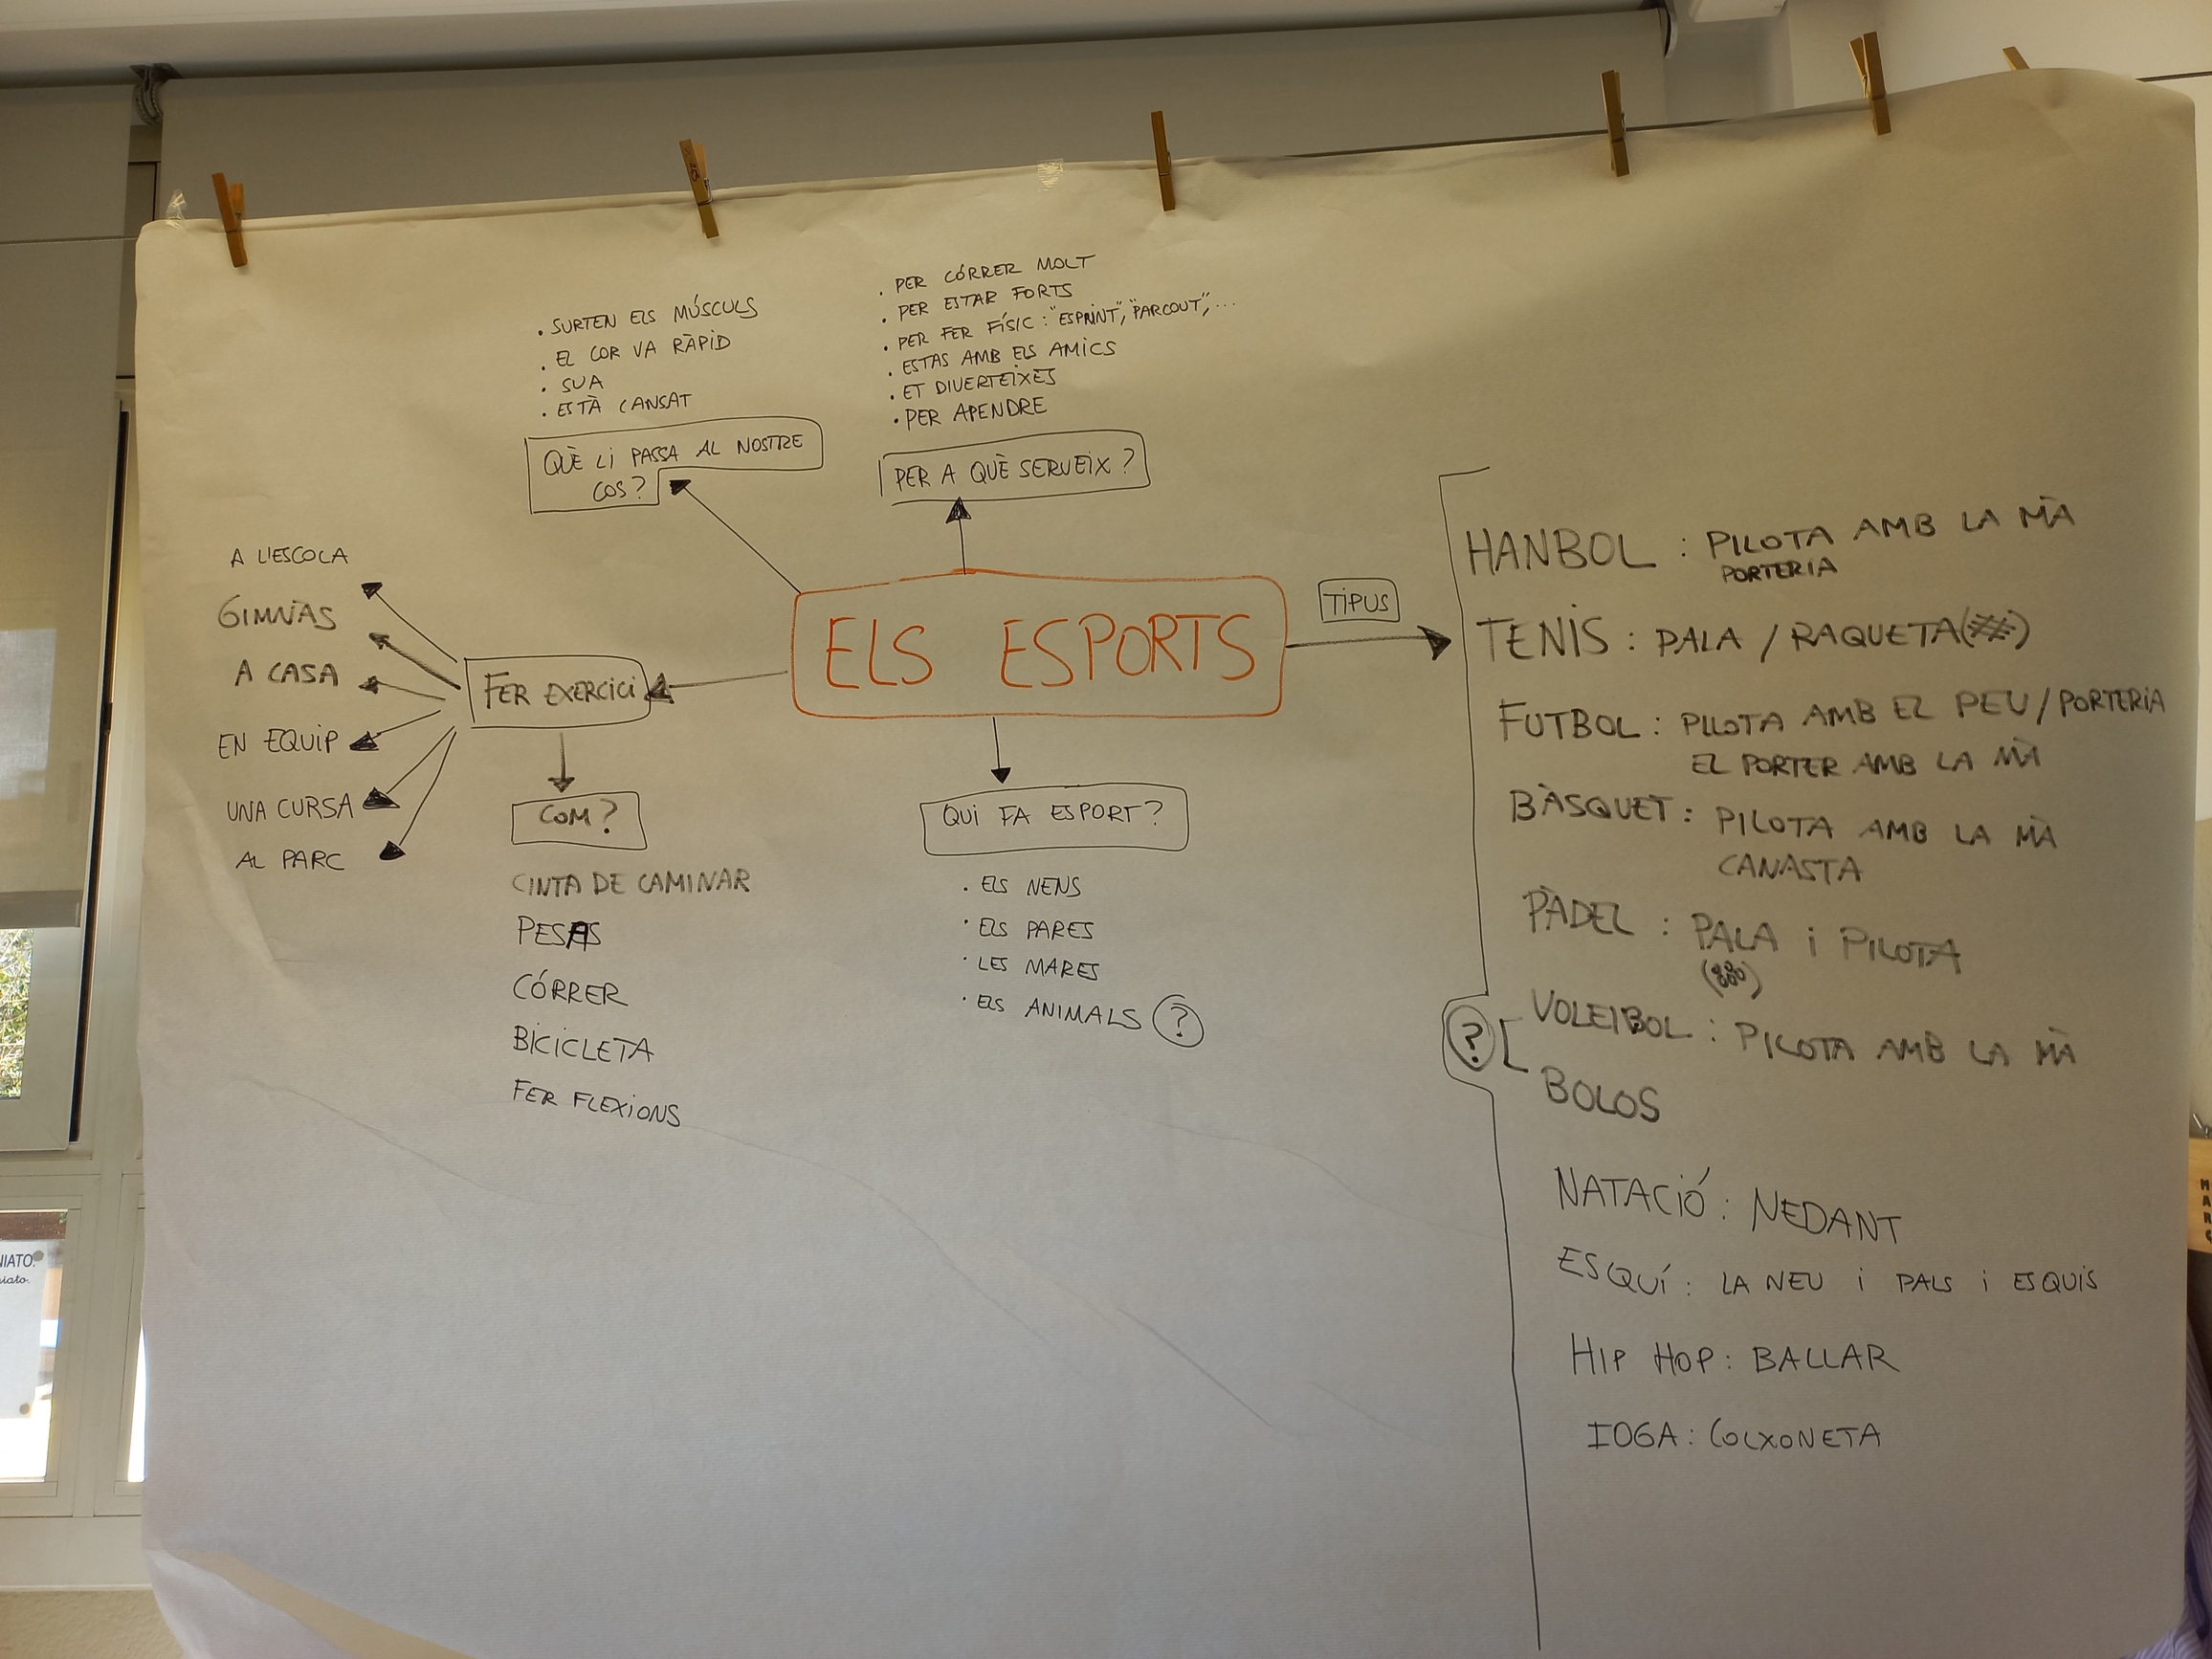 . PER CÓRRER MOLT
. PER ESTAR FORTS
. PER FER FÍSIC : "ESPRINT", "PARCOUT", ...
. ESTAS AMB ELS AMICS
. ET DIVERTEIXES
. PER APENDRE
PER A QUÈ SERVEIX ?
. SURTEN ELS MÚSCULS
. EL COR VA RÀPID
. SUA
. ESTÀ CANSAT
QUÈ LI PASSA AL NOSTRE
COS?
ELS ESPORTS
FER EXERCICI
A L'ESCOLA
GIMNÀS
A CASA
EN EQUIP
UNA CURSA
AL PARC
COM?
CINTA DE CAMINAR
PESAS
CÓRRER
BICICLETA
FER FLEXIONS
QUI FA ESPORT?
. ELS NENS
. ELS PARES
. LES MARES
. ELS ANIMALS ?
TIPUS
HANBOL : PILOTA AMB LA MÀ
PORTERIA
TENIS : PALA / RAQUETA (#)
FUTBOL : PILOTA AMB EL PEU / PORTERIA
EL PORTER AMB LA MÀ
BÀSQUET : PILOTA AMB LA MÀ
CANASTA
PÀDEL : PALA i PILOTA
? VOLEIBOL : PILOTA AMB LA MÀ
BOLOS
NATACIÓ : NEDANT
ESQUÍ : LA NEU i PALS i ESQUIS
HIP HOP : BALLAR
IOGA : COLXONETA
NIATO.